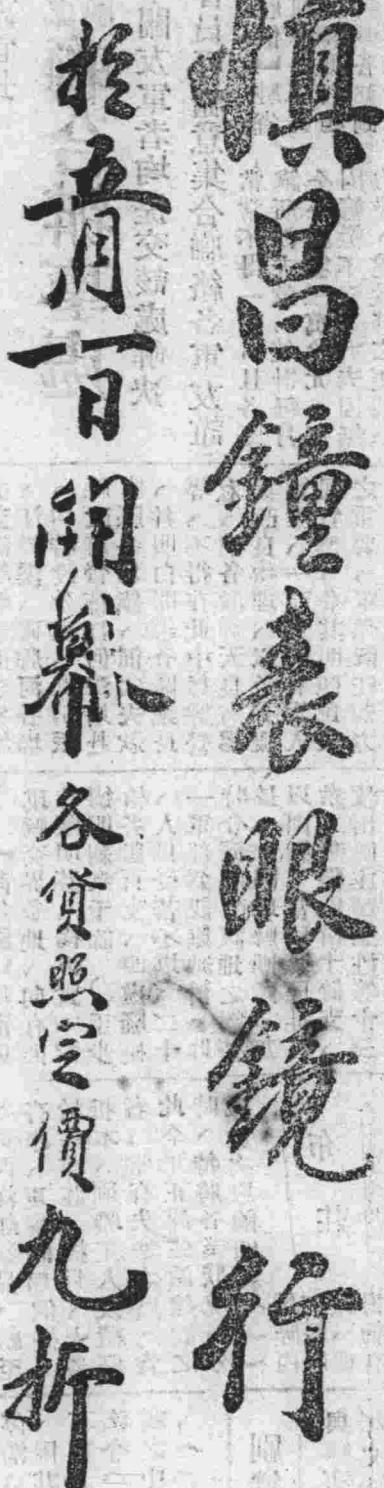 慎昌鐘表眼鏡行
於五月一日開幕各貨照定價九折